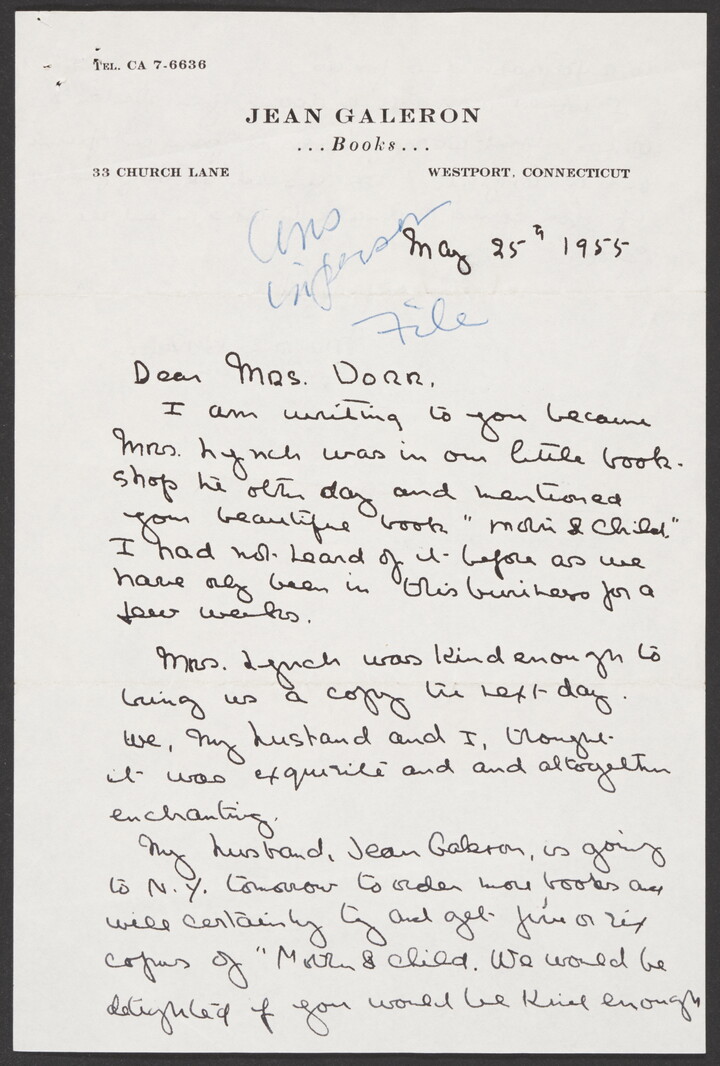 TEL. CA 7-6636
JEAN GALERON
...Books...
33 CHURCH LANE
WESTPORT, CONNECTICUT
May 25th 1955
File
Dear Mrs. Dorr,
I am writing to you because
Mrs. Lynch was in our little book-
shop the other day and mentioned
your beautiful book "Mother & Child"
I had not heard of it before as we
have only been in this business for a
few weeks.
Mrs. Lynch was kind enough to
bring us a copy the next day.
We, my husband and I, thought
it was exquisite and and altogether
enchanting.
My husband, Jean Galeron, is going
to N.Y. tomorrow to order more books and
will certainly try and get five or six
copies of "Mother & Child. We would be
delighted if you would be kind enough